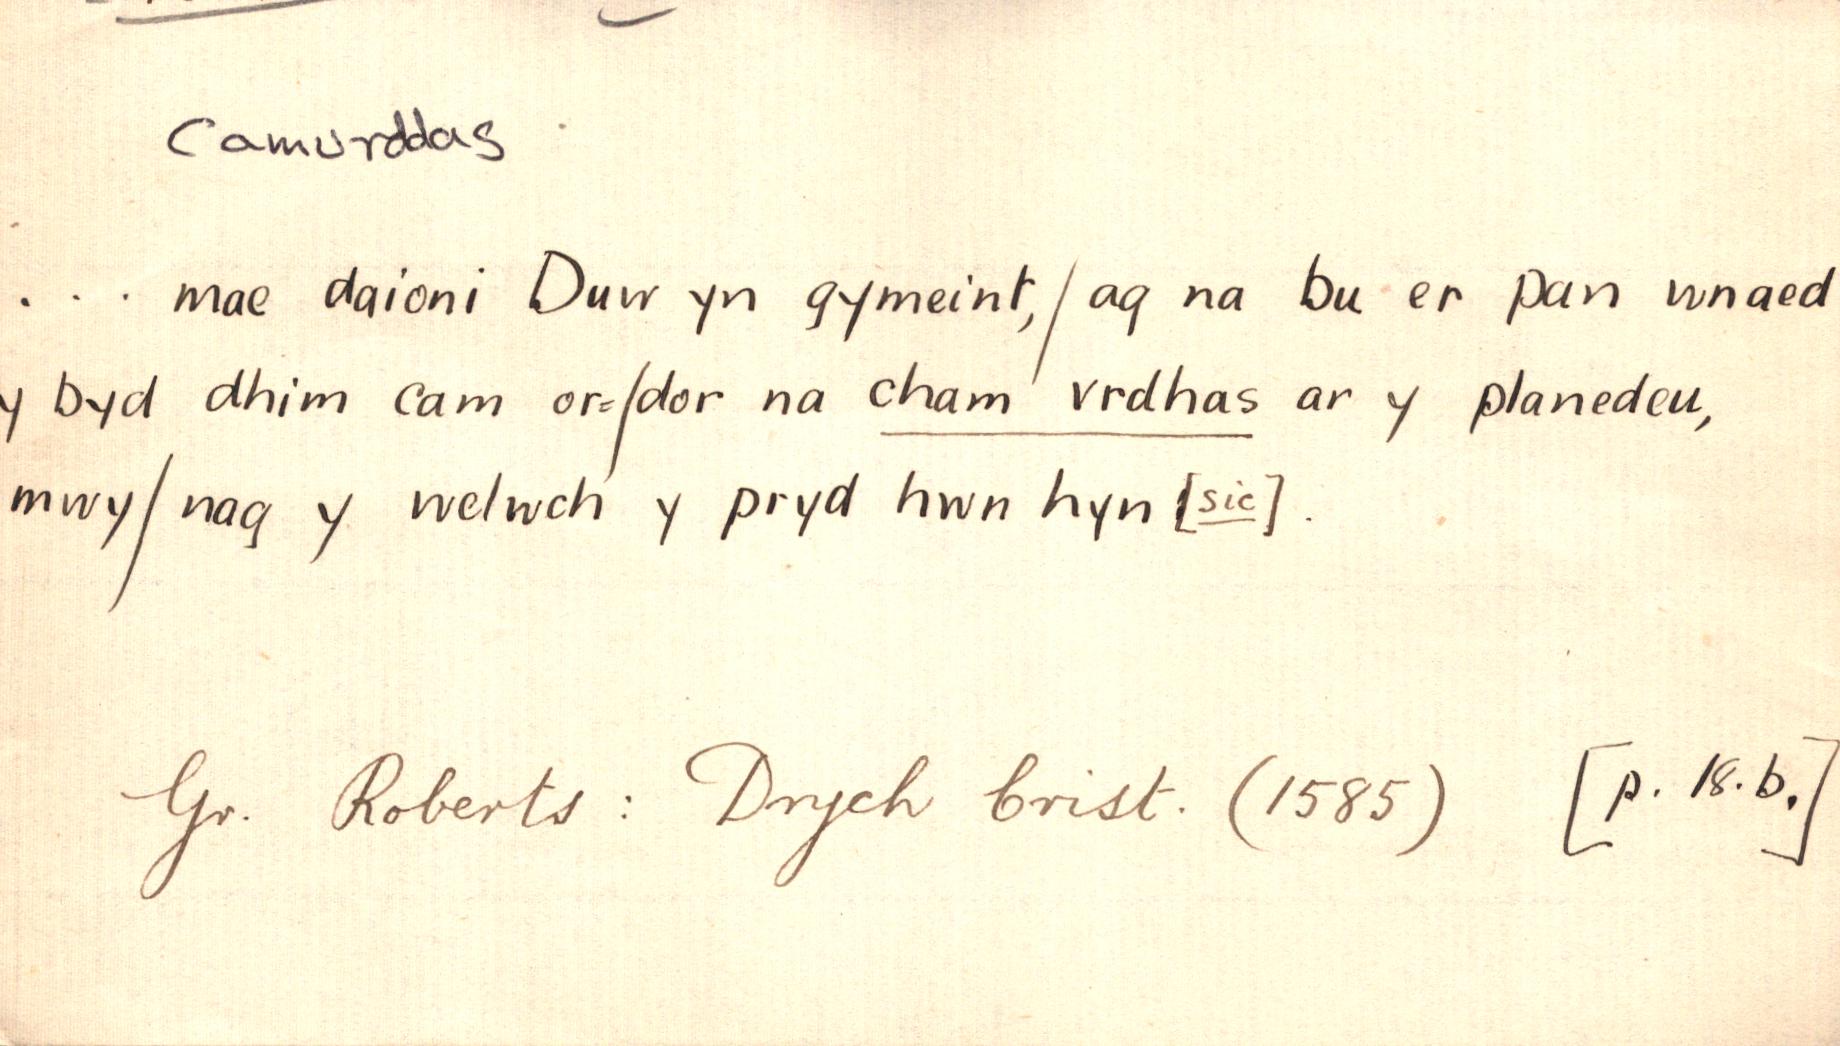 Camurddas
. . . mae daioni Duw yn gymeint,/ag na bu er pan wnaed
y byd dhim cam or=/dor na cham vrdhas ar y planedeu,
mwy/nag y welwch y pryd hwn hyn [sic].
Gr. Roberts: Drych Crist. (1585) [p. 18.b.]